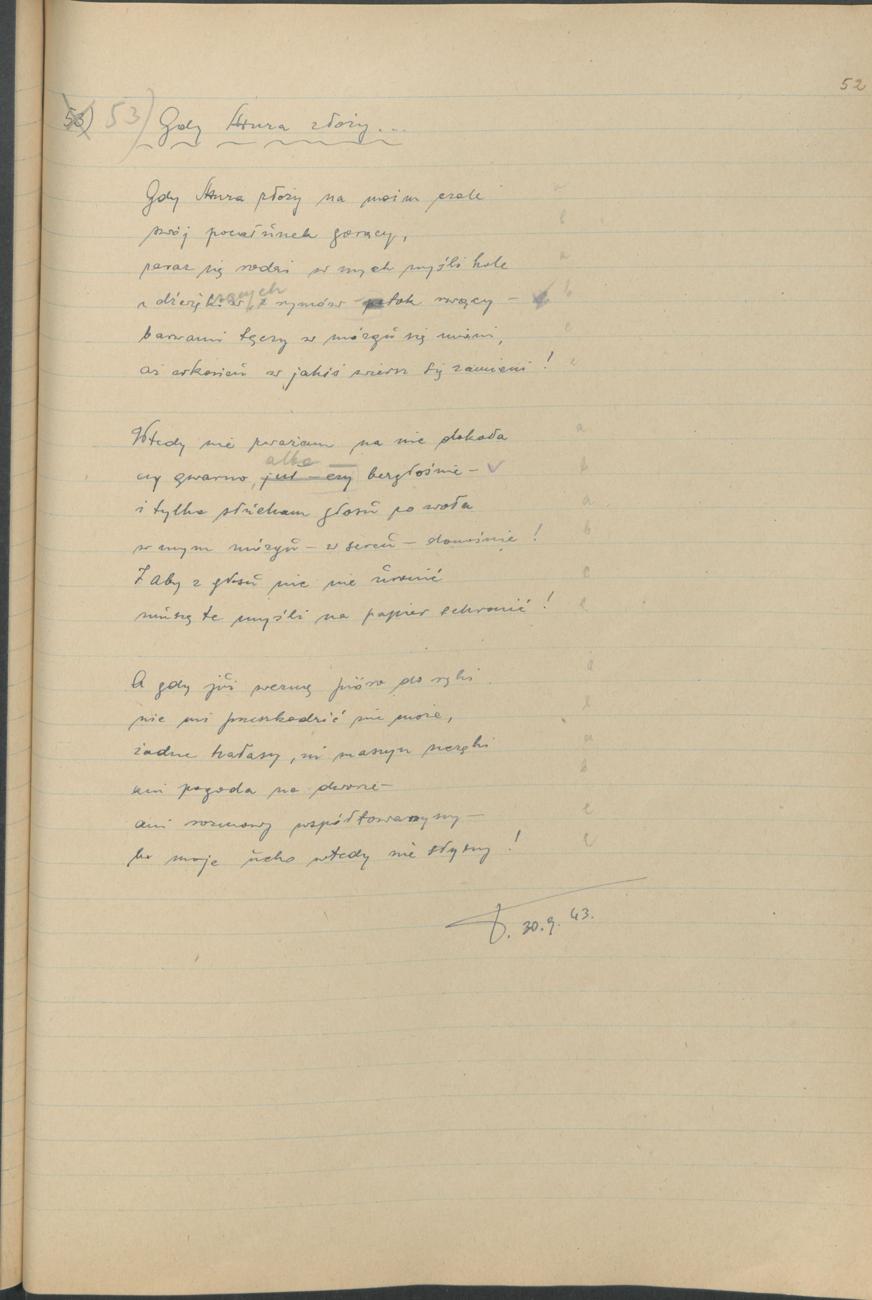 52
53) 53) Gdy Muza złoży...
Gdy Muza złoży na moim czole
swój pocałunek gorący,
zaraz się rodzi w mych myśli kole
z dźwięków, z rymów potok rwący —
barwami tęczy w mózgu się mieni,
aż wkońcu w jakiś wiersz się zamieni!
Wtedy nie zważam na nic dokoła
albo
czy gwarno, już — czy bezgłośnie —
i tylko słucham głosu co woła
w mym mózgu — w sercu — donośnie!
I aby z głosu nic nie uronić
muszę te myśli na papier schronić!
A gdy już wezmę pióro do ręki
nic mi przeszkodzić nie może,
żadne hałasy, ni maszyn szczęki
ani pogoda na dworze —
ani rozmowy współtowarzyszy —
bo moje ucho wtedy nie słyszy!
30.9.43.